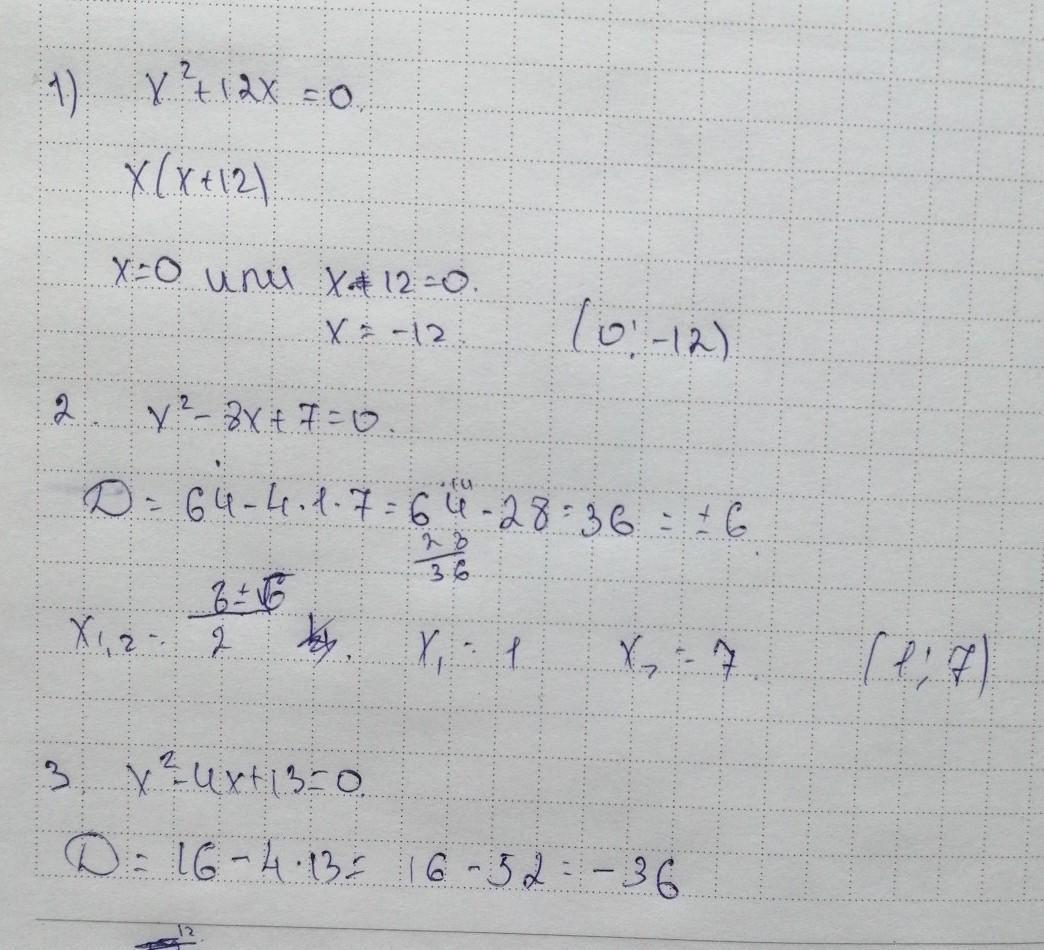 1) x²+12x=0.
x(x+12)
x=0 или x+12=0.
x=-12. (0;-12)
2. x²-8x+7=0.
D=64-4·1·7=64-28=36=±6.
28
36
x₁,₂= (8±√6)/2 x₁=1 x₂=7. (1;7)
3. x²-4x+13=0.
D=16-4·13= 16-52=-36
12